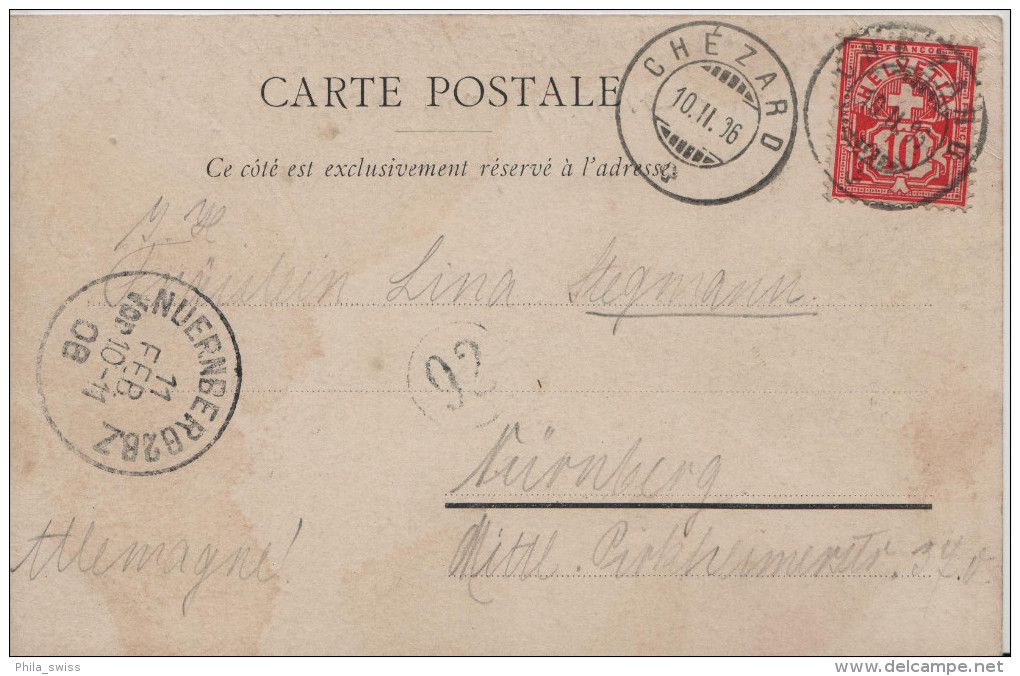 CARTE POSTALE
Ce côté est exclusivement réservé à l'adresse
CHÉZARD
10.II.06
FRANCO
HELVETIA
10
CHÉZARD
Fräulein Lina Stegmann.
NUERNBERG 2BZ
11
FEB.
10-11
06
92
Nürnberg
Mittl. Pirkheimerstr.
Allemagne!
Phila_swiss
www.delcampe.net